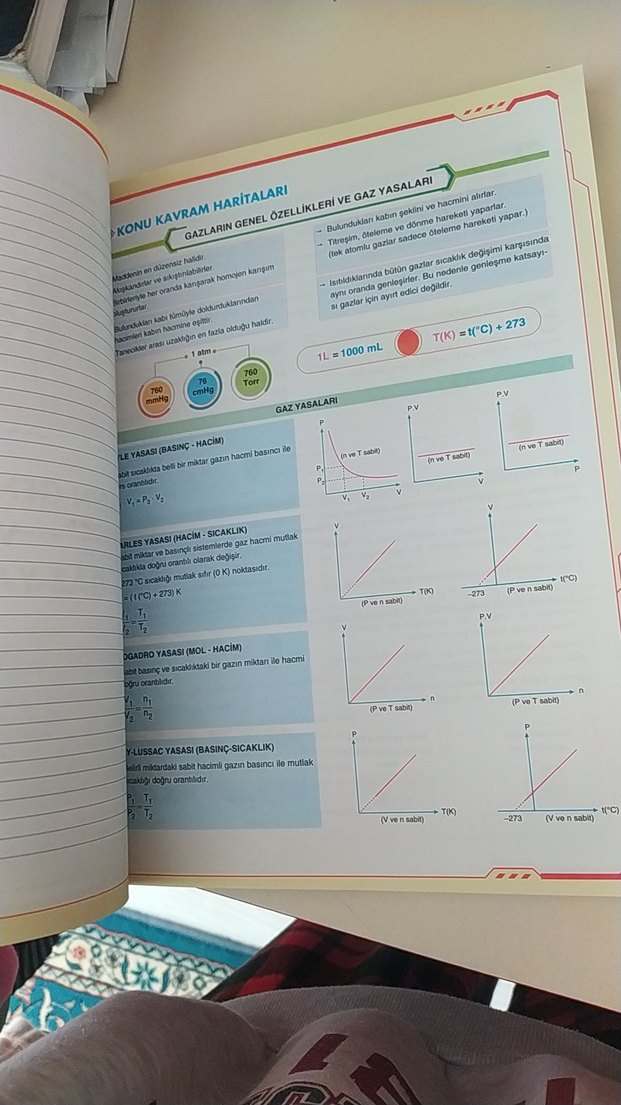 KONU KAVRAM HARİTALARI
GAZLARIN GENEL ÖZELLİKLERİ VE GAZ YASALARI
Maddenin en düzensiz halidir.
Akışkandırlar ve sıkıştırılabilirler.
Birbirleriyle her oranda karışarak homojen karışım
oluştururlar.
Bulundukları kabı tümüyle doldurduklarından
hacimleri kabın hacmine eşittir.
Tanecikler arası uzaklığın en fazla olduğu haldir.
→ Bulundukları kabın şeklini ve hacmini alırlar.
→ Titreşim, öteleme ve dönme hareketi yaparlar.
(tek atomlu gazlar sadece öteleme hareketi yapar.)
→ Isıtıldıklarında bütün gazlar sıcaklık değişimi karşısında
aynı oranda genleşirler. Bu nedenle genleşme katsayı-
sı gazlar için ayırt edici değildir.
1 atm
760
mmHg
76
cmHg
760
Torr
1L = 1000 mL
T(K) = t(°C) + 273
GAZ YASALARI
YLE YASASI (BASINÇ - HACİM)
abit sıcaklıkta belli bir miktar gazın hacmi basıncı ile
rs orantılıdır.
V₁ = P₂ · V₂
P
P₁
P₂
V₁
V₂
V
(n ve T sabit)
P.V
(n ve T sabit)
V
P.V
(n ve T sabit)
P
ARLES YASASI (HACİM - SICAKLIK)
abit miktar ve basınçlı sistemlerde gaz hacmi mutlak
ıcaklıkla doğru orantılı olarak değişir.
273 °C sıcaklığı mutlak sıfır (0 K) noktasıdır.
= ( t (°C) + 273) K
V₁/V₂ = T₁/T₂
V
T(K)
(P ve n sabit)
V
t(°C)
–273
(P ve n sabit)
OGADRO YASASI (MOL - HACİM)
abit basınç ve sıcaklıktaki bir gazın miktarı ile hacmi
oğru orantılıdır.
V₁/V₂ = n₁/n₂
V
n
(P ve T sabit)
P.V
n
(P ve T sabit)
Y-LUSSAC YASASI (BASINÇ-SICAKLIK)
elirli miktardaki sabit hacimli gazın basıncı ile mutlak
ıcaklığı doğru orantılıdır.
P₁/P₂ = T₁/T₂
P
T(K)
(V ve n sabit)
P
t(°C)
–273
(V ve n sabit)